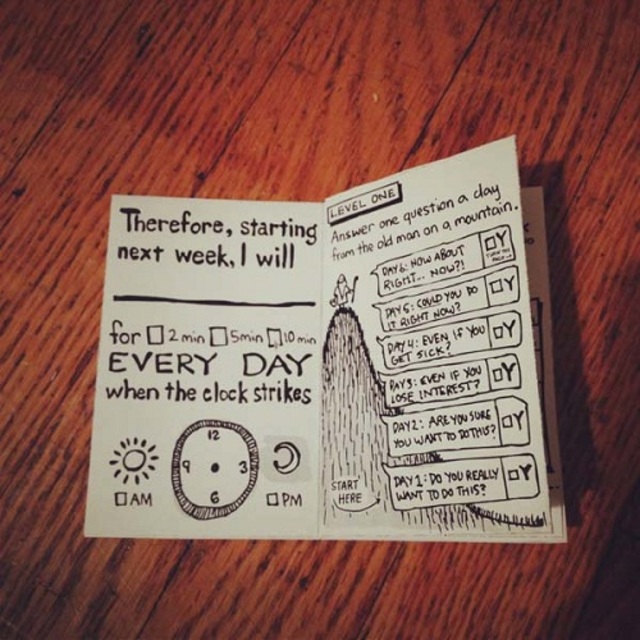 Therefore, starting
next week, I will
for 2 min 5min 10 min
EVERY DAY
when the clock strikes
12
9 3
6
AM
PM
LEVEL ONE
Answer one question a day
from the old man on a mountain.
DAY 6: HOW ABOUT
RIGHT... NOW?!
Y
DAY 5: COULD YOU DO
IT RIGHT NOW?
Y
DAY 4: EVEN IF YOU
GET SICK?
Y
DAY 3: EVEN IF YOU
LOSE INTEREST?
Y
DAY 2: ARE YOU SURE
YOU WANT TO DO THIS?
Y
DAY 1: DO YOU REALLY
WANT TO DO THIS?
Y
START
HERE